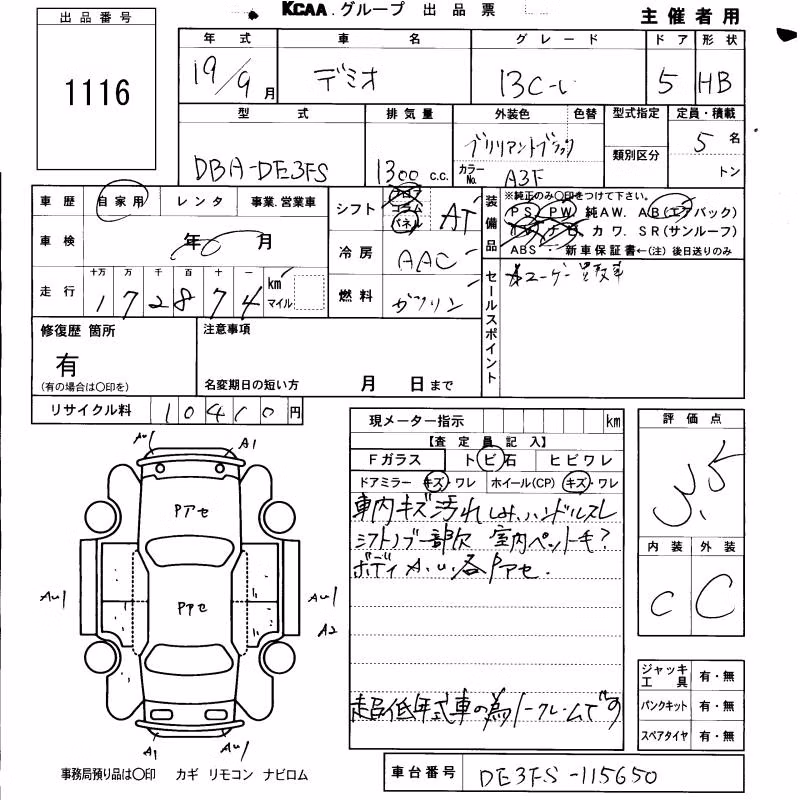 KCAA.グループ 出品票
主催者用
出品番号
1116
年式 車名 グレード ドア 形状
19/9月 デミオ 13C-V 5 HB
型式 排気量 外装色 色替 型式指定 定員・積載
DBA-DE3FS 1300 c.c. ブリリアントブラック カラーNo. A3F 類別区分 5名
トン
車歴 自家用 レンタ 事業.営業車
車検 年 月
走行 十万 万 千 百 十 一
172874 km マイル
シフト フロア コラム パネル AT
冷房 AAC
燃料 ガソリン
装備品
※純正のみ○印をつけて下さい。
PS. PW 純AW. AB(エアバック)
TV ナビ カワ. SR(サンルーフ)
ABS・ 新車保証書←(注)後日送りのみ
セールスポイント
ユーザー買取車
修復歴 箇所
有
(有の場合は○印を)
注意事項
名変期日の短い方 月 日まで
リサイクル料 10410円
現メーター指示 km
【査定員記入】
Fガラス トビ石 ヒビワレ
ドアミラー キズ・ワレ ホイール(CP) キズ・ワレ
車内キズ汚れ シミ、ハンドルスレ
シフトノブ一部欠 室内ペットモ?
ボディA.U.各Pアセ.
超低年式車の為ノークレームです
評価点
3.5
内装 外装
C C
ジャッキ工具 有・無
パンクキット 有・無
スペアタイヤ 有・無
AU1 A1
Pアセ
Pアセ
AU1 AU1
A2
A1 AU1
事務局預り品は○印 カギ リモコン ナビロム
車台番号 DE3FS-115650